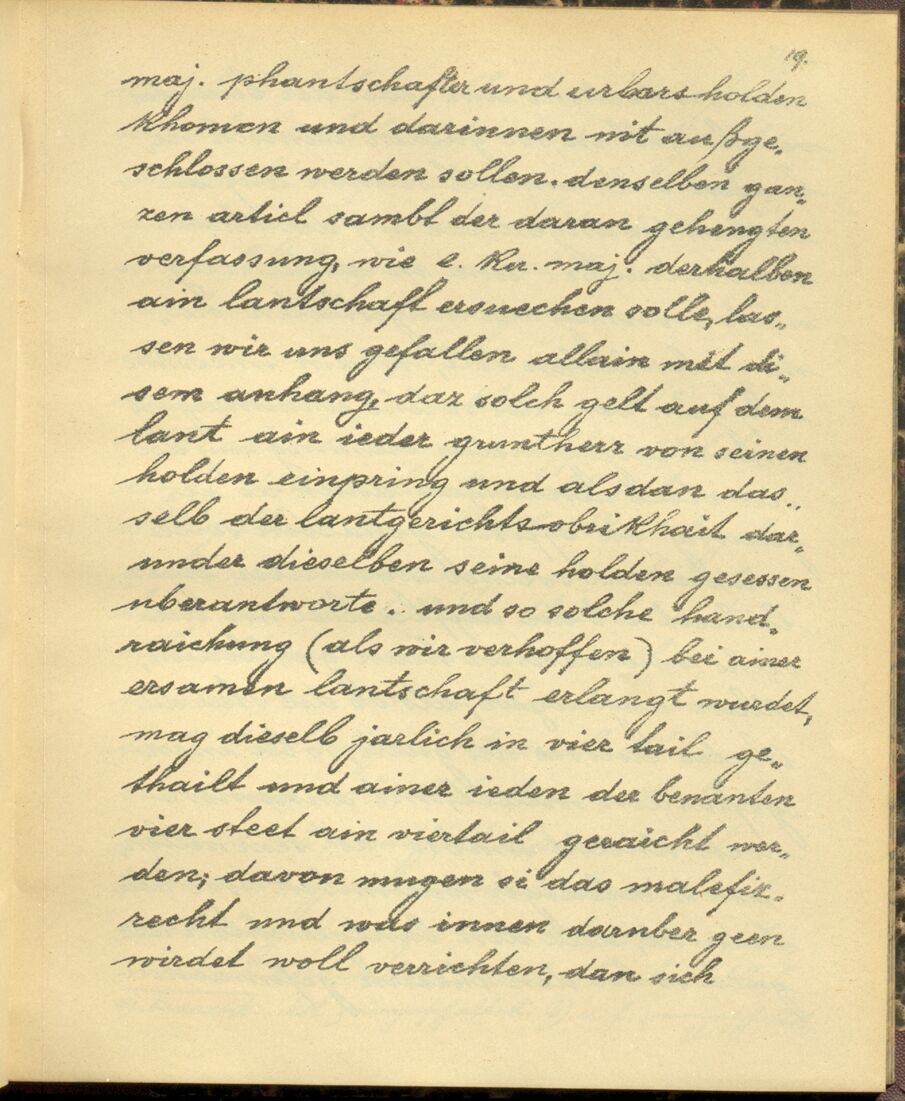 19.
maj. phantschafter und urbars holden
khomen und darinnen nit außge„
schlossen werden sollen. denselben gan„
zen articl sambt der daran gehengten
verfassung, wie e. kur. maj. derhalben
ain lantschaft ersuechen solle, las„
sen wir uns gefallen allain mit di„
sem anhang, daz solch gelt auf dem
lant ain ieder gruntherr von seinen
holden einpring und alsdan das„
selb der lantgerichts obrikhait dar„
under dieselben seine holden gesessen
uberantworte. und so solche hand„
raichung (als wir verhoffen) bei ainer
ersamen lantschaft erlangt wurdet,
mag dieselb jarlich in vier tail ge„
thailt und ainer ieden der benanten
vier steet ain viertail geraicht wer„
den; davon mugen si das malefiz„
recht und was innen daruber geen
wirdet woll verrichten, dan sich